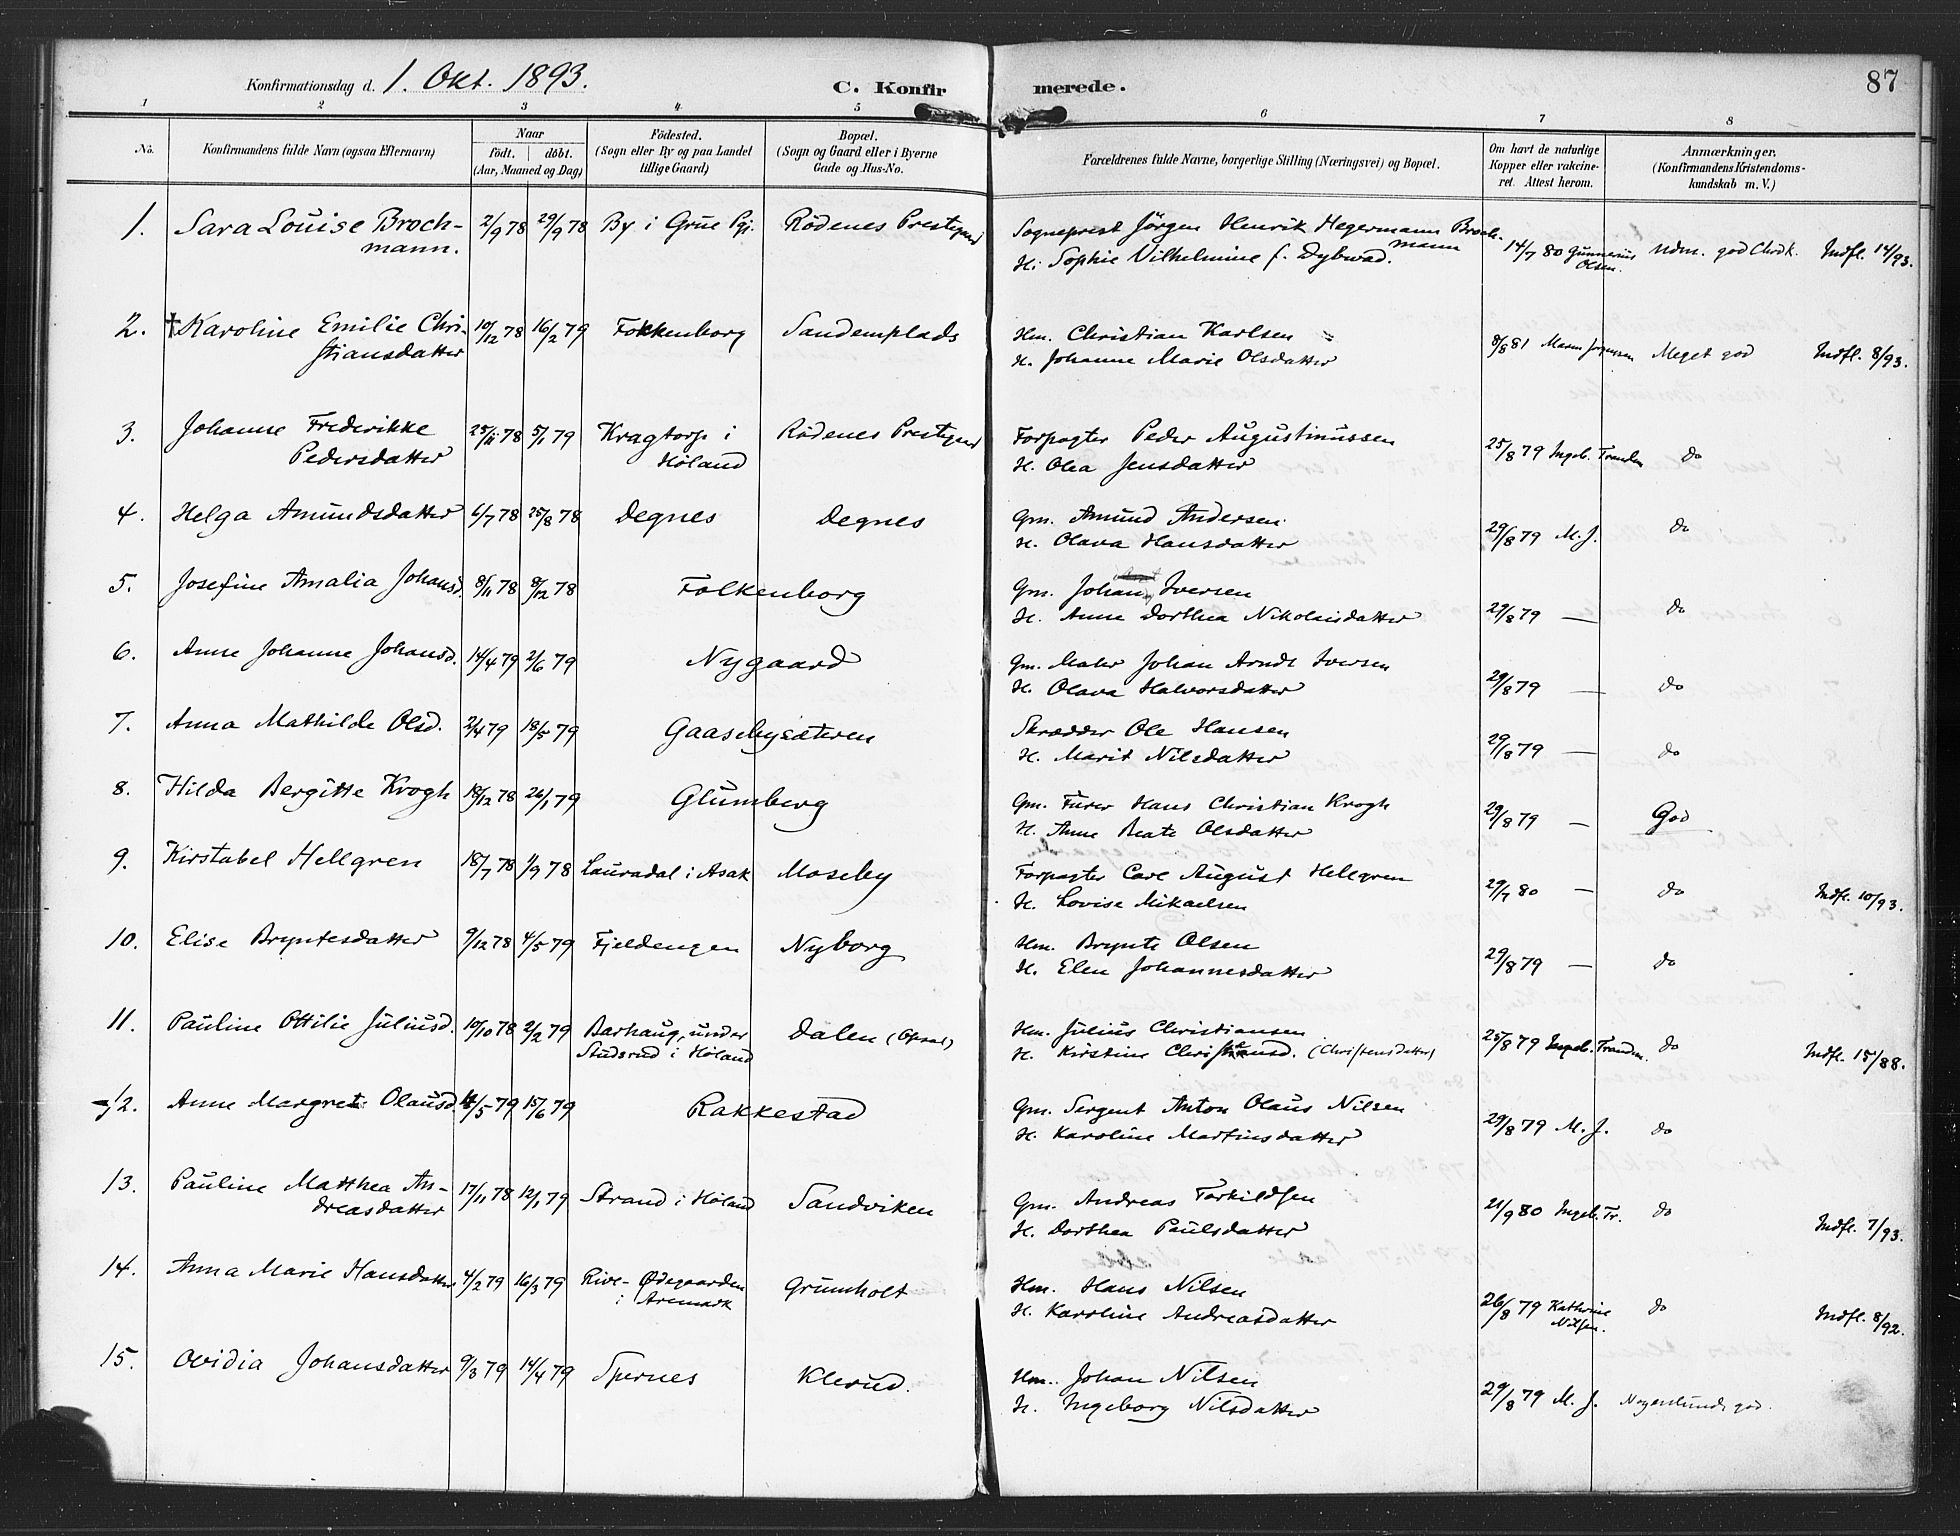 Konfirmationsdag d. 1. Okt. 1893. C. Konfirmerede. 87
1 2 3 4 5 6 7 8
No. Konfirmandens fulde Navn (ogsaa Efternavn) Naar født. døbt. (Aar, Maaned og Dag) Fødested. (Sogn eller By og paa Landet tillige Gaard) Bopæl. (Sogn og Gaard eller i Byerne Gade og Hus-No. Forældrenes fulde Navne, borgerlige Stilling (Næringsvei) og Bopæl. Om havt de naturlige Kopper eller vakcineret. Attest herom. Anmærkninger. (Konfirmandens Kristendomskundskab m. V.)
1. Sara Louise Broch- 2/9 78 29/9 78 By i Grue Pgj. Rödenes Prestegaard Sogneprest Jörgen Henrik Hegermann Broch-
mann. mann
H: Sophie Vilhelmine f. Dybwad. 14/7 80 Gunnerius Olsen. Udm. god Chrdk. Indfl. 14/93.
2. † Karoline Emilie Chri- 10/12 78 16/2 79 Fokkenborg Sandemplads Hm. Christian Karlsen
stiansdatter H. Johanne Marie Olsdatter 8/8 81 Maren Jørgensen Meget god Indfl. 8/93.
3. Johanne Frederikke 25/11 78 5/1 79 Kragtorp i Rödenes Prestegaard Forpagter Peder Augustinussen
Pedersdatter Høland H. Olea Jensdatter 25/8 79 Ingeb. Tranden do
4. Helga Amundsdatter 6/7 78 25/8 78 Degnes Degnes Gm. Amund Andersen
H. Olava Hansdatter 29/8 79 M. J. do
5. Josefine Amalia Johansd. 8/11 78 8/12 78 Folkenborg Gm. Johan Iversen
H. Anne Dorthea Nikolaisdatter 29/8 79 — do
6. Anne Johanne Johansd. 14/4 79 2/6 79 Nygaard Gm. Maler Johan Arndt Iversen
H. Olava Halvorsdatter 29/8 79 — do
7. Anna Mathilde Olsd. 2/4 79 18/5 79 Gaasebysæteren Skrædder Ole Hansen
H. Marit Nilsdatter 29/8 79 — do
8. Hilda Bergitte Krogh 18/12 78 26/1 79 Glumberg Gm. Furer Hans Christian Krogh
H. Anne Beate Olsdatter 29/8 79 — God
9. Kirstabel Hellgren 18/7 78 1/9 78 Lauradal i Asak Moseby Forpagter Carl August Hellgren
H. Lovise Mikaelsen 29/7 80 — do Indfl. 10/93.
10. Elise Bryntesdatter 9/12 78 4/5 79 Fjeldengen Nyborg Hm. Brynte Olsen
H. Elen Johannesdatter 29/8 79 — do
11. Pauline Ottilie Juliusd. 10/10 78 2/2 79 Barhaug, under Dalen (Opsal) Hm. Julius Christiansen
Studsrud i Høland H. Kirstine Christiansd. (Christensdatter) 25/8 79 Ingeb. Tranden. do Indfl. 15/88.
12. Anne Margret Olausd. 14/5 79 15/6 79 Rakkestad Gm. Sergent Anton Olaus Nilsen
H. Karoline Martinsdatter 29/8 79 M. J. do
13. Pauline Matthea An- 17/11 78 12/1 79 Strand i Høland Sandviken Gm. Andreas Torkildsen
dreasdatter H. Dorthea Paulsdatter 21/9 80 Ingeb. Tr. do Indfl. 7/93.
14. Anna Marie Hansdatter 4/2 79 16/3 79 Rive- Ødegaarden Grumholt Hm. Hans Nilsen
i Aremark H. Karoline Andreasdatter 26/8 79 Kathrine Nilsen. do Indfl. 8/92.
15. Ovidia Johansdatter 9/3 79 14/4 79 Spernes Klerud. Hm. Johan Nilsen
H. Ingeborg Nilsdatter 29/8 79 M. J. Nogenlunde god.